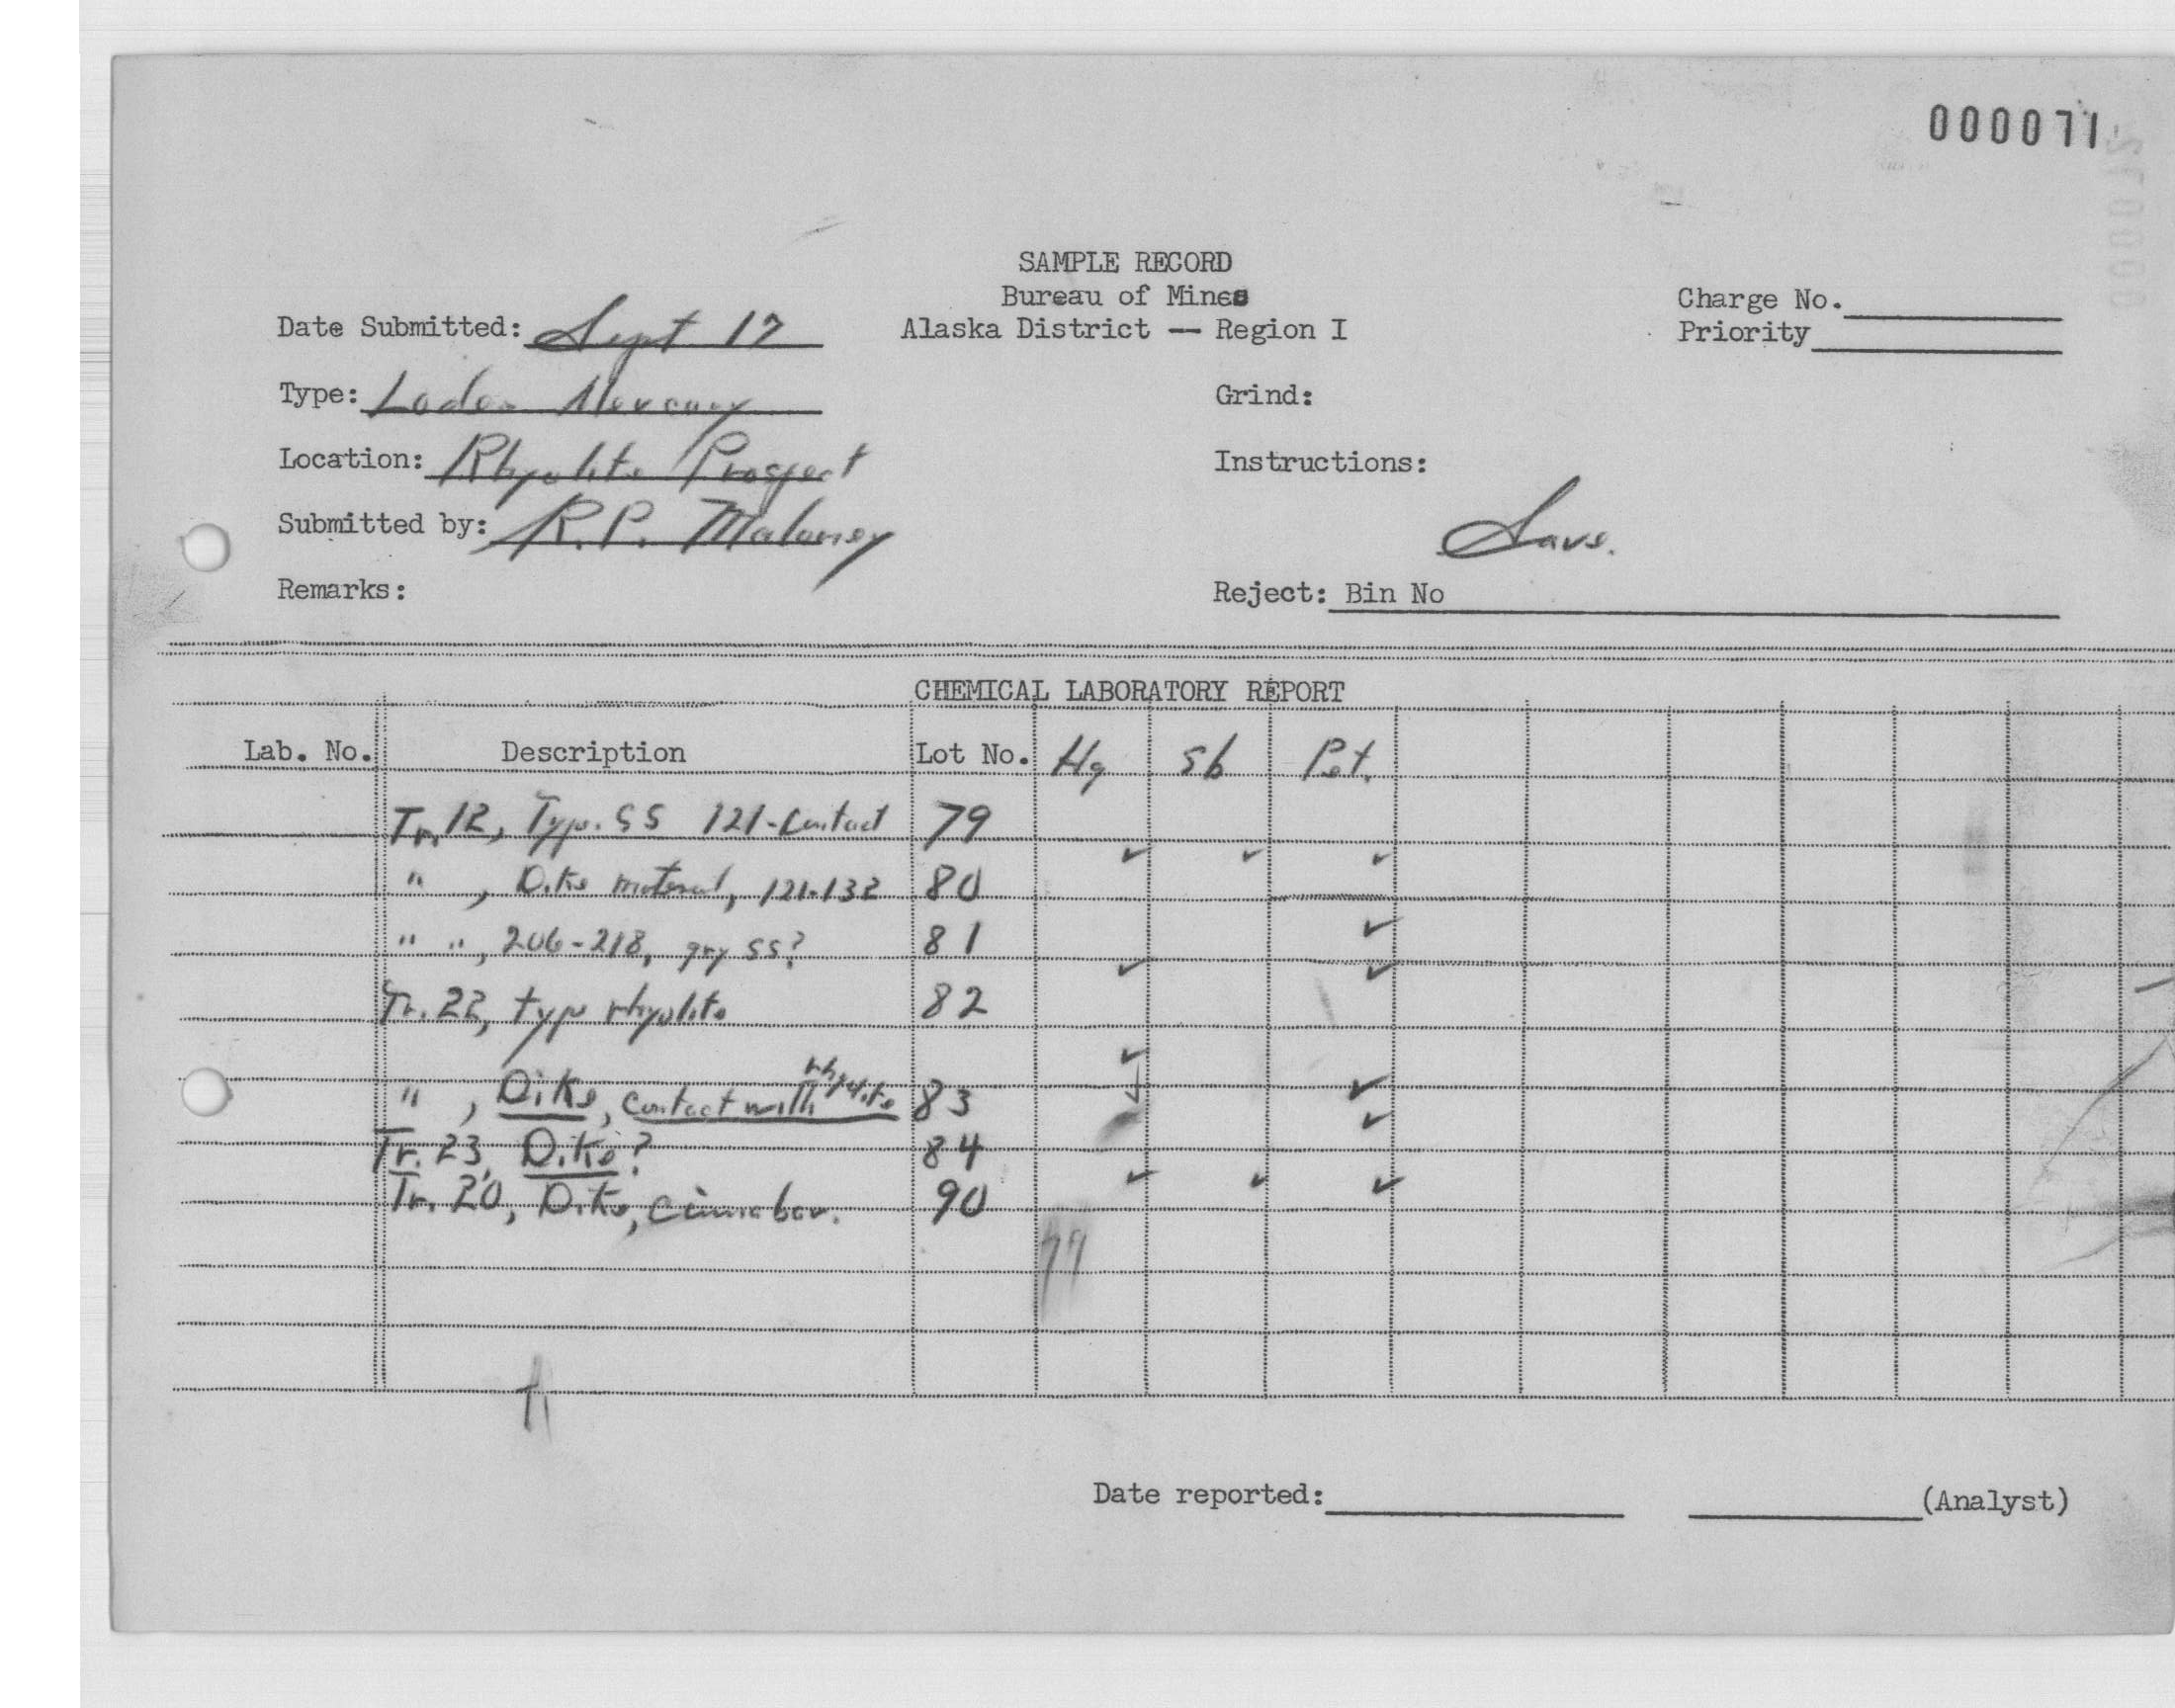 000071
SAMPLE RECORD
Bureau of Mines
Alaska District -- Region I
Charge No.
Priority
Date Submitted: Sept 17
Type: Lode - Mercury
Grind:
Location: Rhyolite Prospect
Instructions:
Submitted by: R.P. Maloney
Save.
Remarks:
Reject: Bin No
CHEMICAL LABORATORY REPORT
Lab. No. Description Lot No. Hg Sb Pet.
Tr. 12, Type SS 121-Contact 79
" , Dike material, 121-132 80 ✓ ✓ ✓
" ", 206-218, gry SS? 81 ✓
Tr. 22, type rhyolite 82 ✓ ✓
" , Dike, contact with rhyolite 83 ✓ ✓
Tr. 23, Dike? 84 ✓
Tr. 20, Dike, Cinnabar. 90 ✓ ✓ ✓
Date reported: (Analyst)